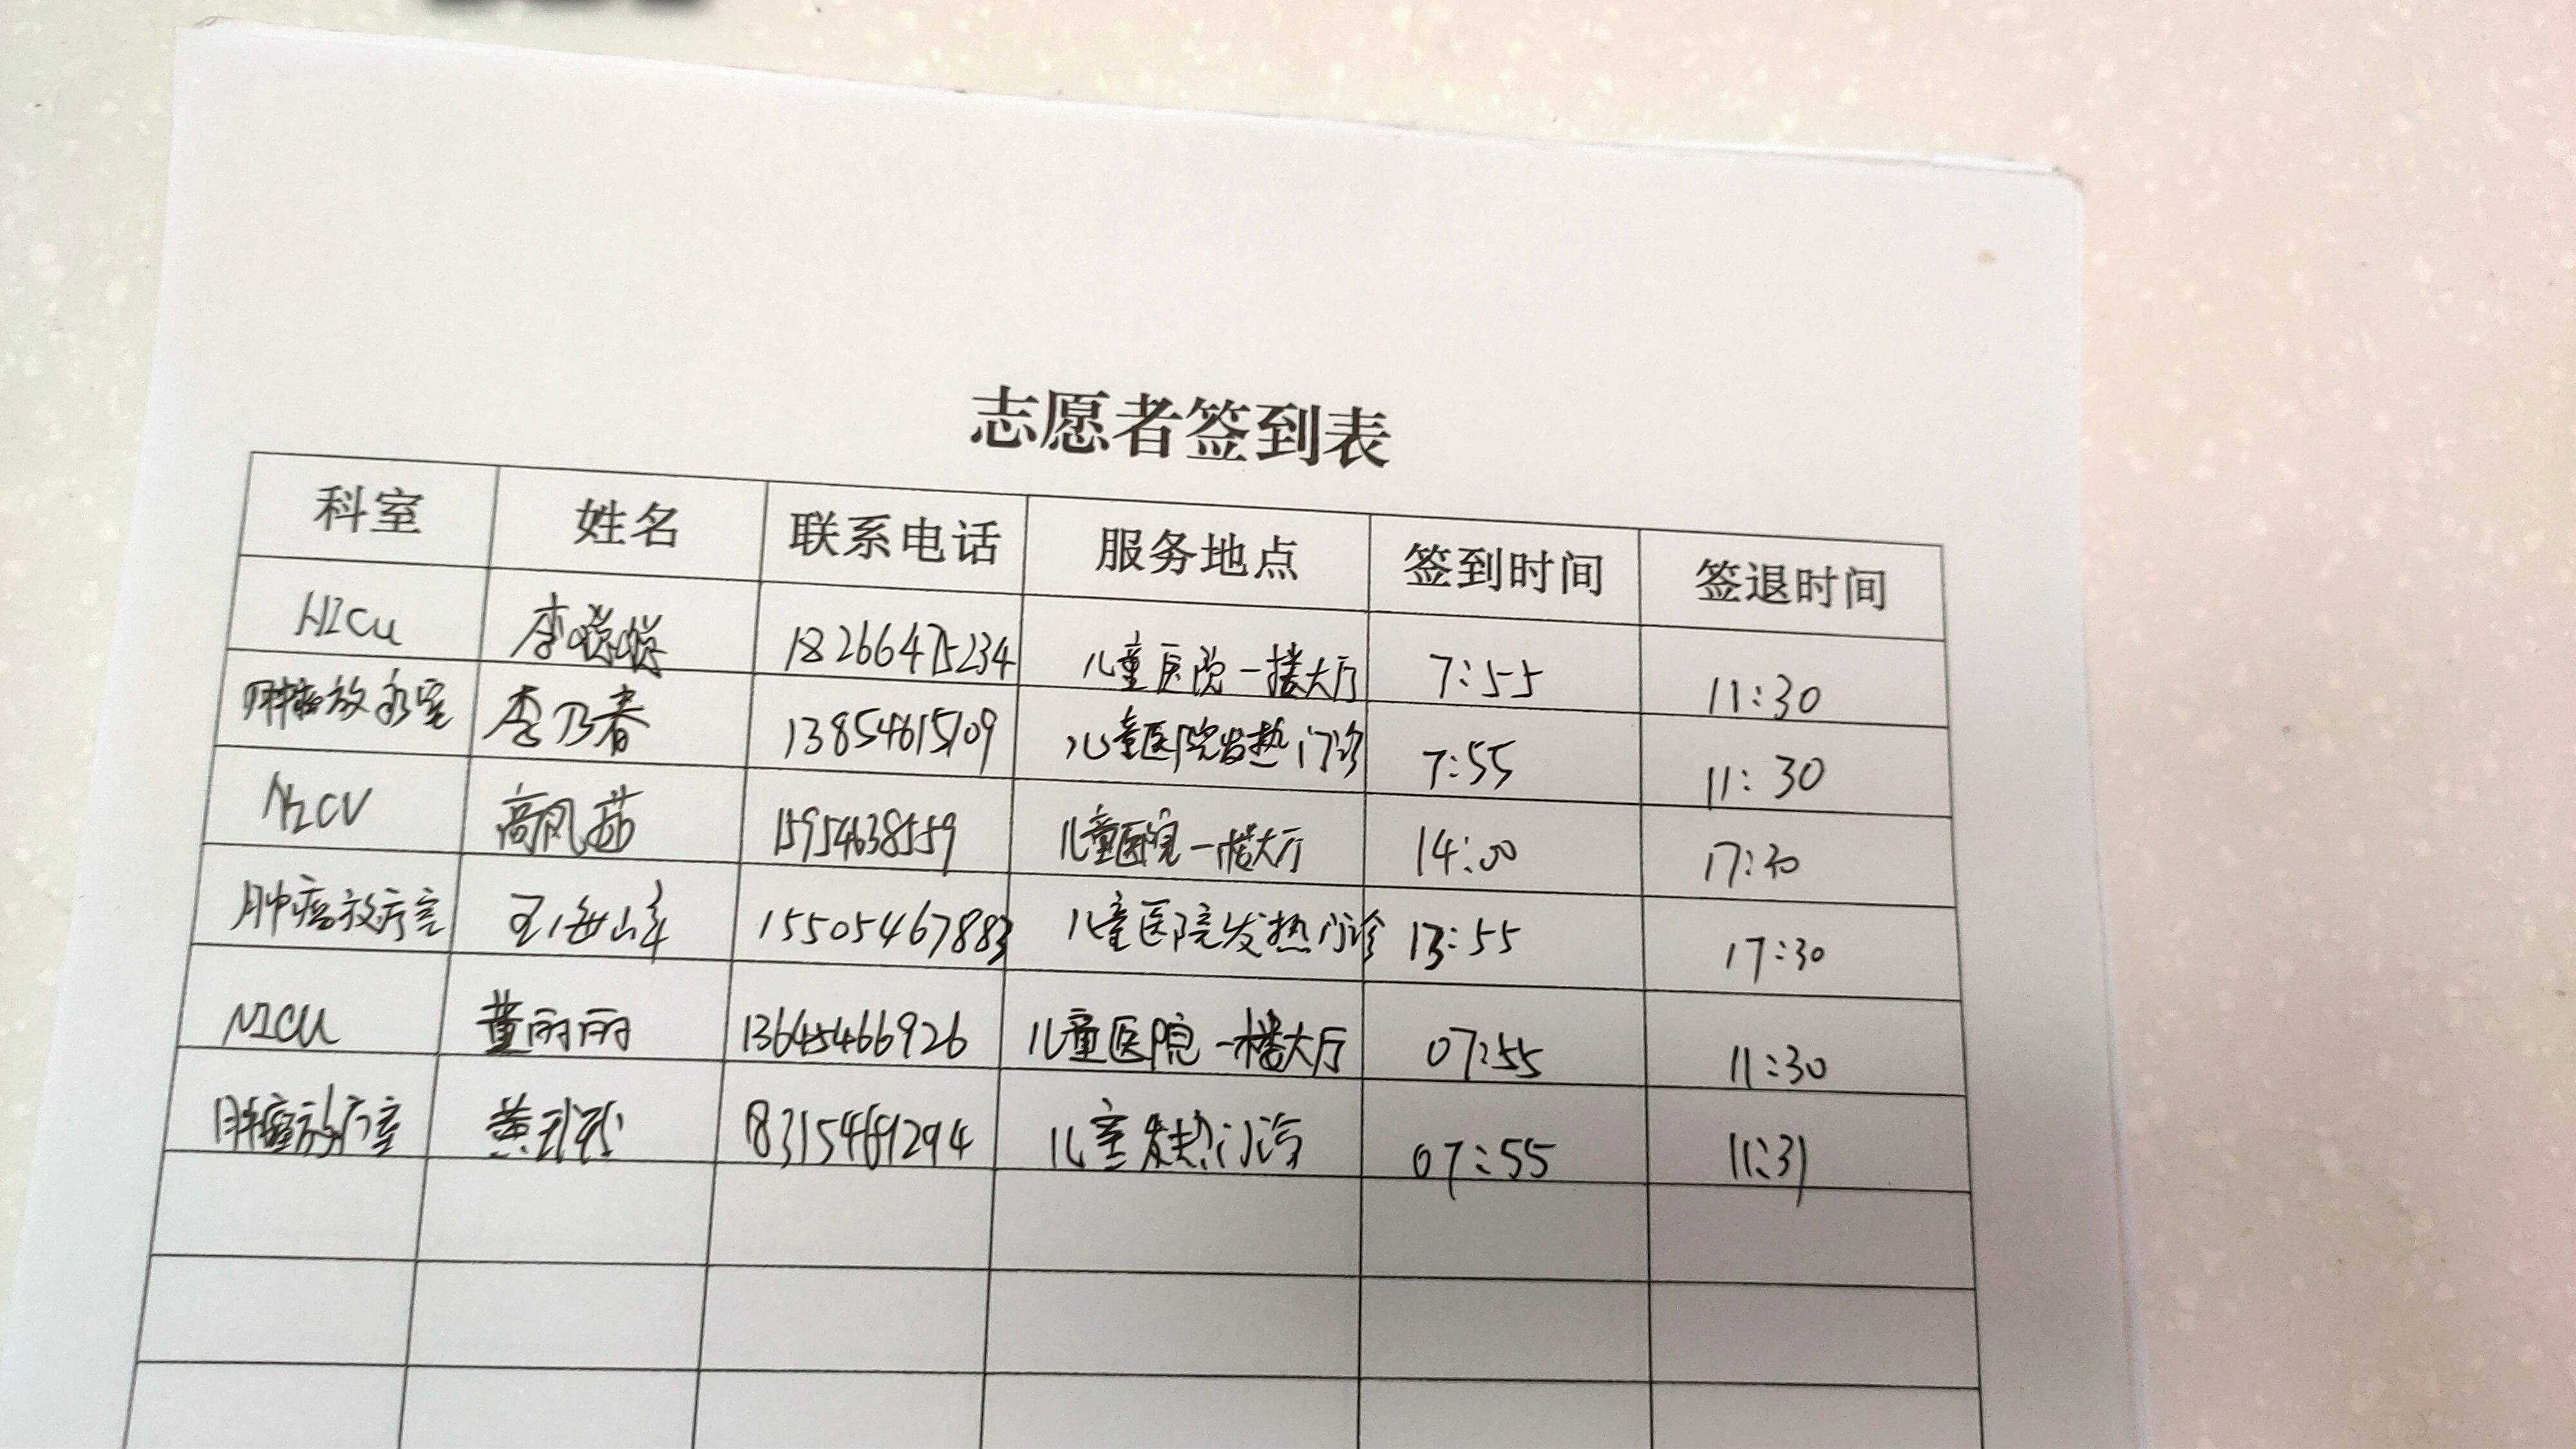 志愿者签到表
科室 姓名 联系电话 服务地点 签到时间 签退时间
HICU 李 18266475234 儿童医院一楼大厅 7:55 11:30
肿瘤放疗室 李乃春 13854615109 儿童医院发热门诊 7:55 11:30
NICU 高凤茹 15954638559 儿童医院一楼大厅 14:00 17:30
肿瘤放疗室 王海峰 15505467883 儿童医院发热门诊 13:55 17:30
NICU 董丽丽 13645466926 儿童医院一楼大厅 07:55 11:30
肿瘤放疗室 黄 儿童发热门诊 07:55 11:31